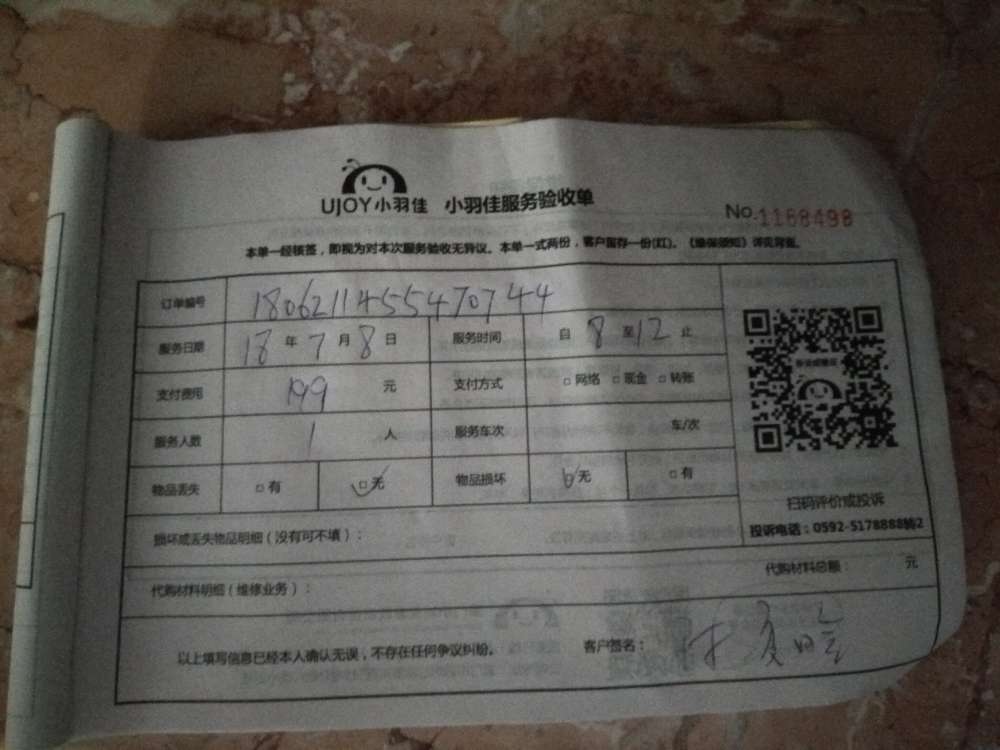 UJOY小羽佳 小羽佳服务验收单
No.1168498
本单一经核签，即视为对本次服务验收无异议。本单一式两份，客户留存一份(红)。《维保须知》详见背面。
订单编号 1806211455470744
服务日期 18 年 7 月 8 日 服务时间 自 8 至 12 止
支付费用 199 元 支付方式 □ 网络 □ 现金 □ 转账
服务人数 1 人 服务车次 车/次
物品丢失 □ 有 □ 无 物品损坏 □ 无 □ 有
扫码评价或投诉
投诉电话：0592-5178888转2
损坏或丢失物品明细（没有可不填）：
代购材料明细（维修业务）： 代购材料总额： 元
以上填写信息已经本人确认无误，不存在任何争议纠纷。 客户签名：